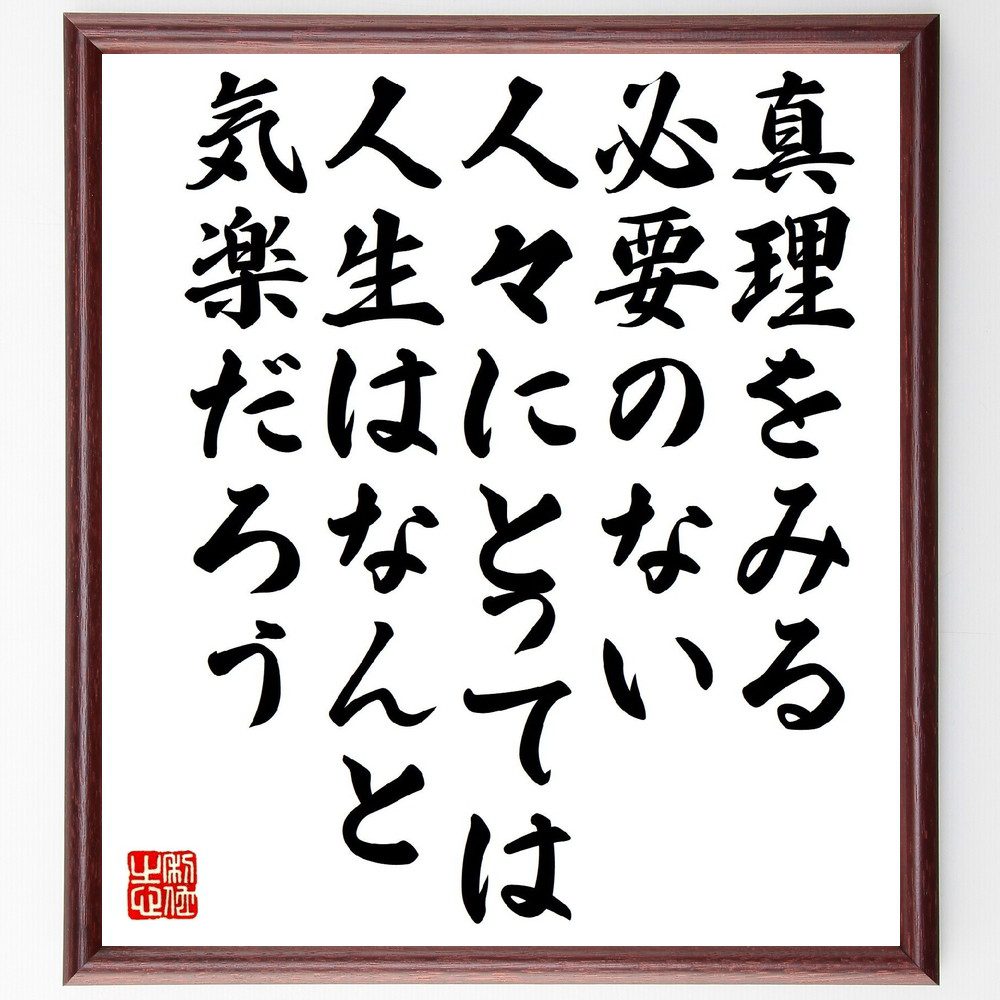 真理をみる
必要のない
人々にとっては
人生はなんと
気楽だろう